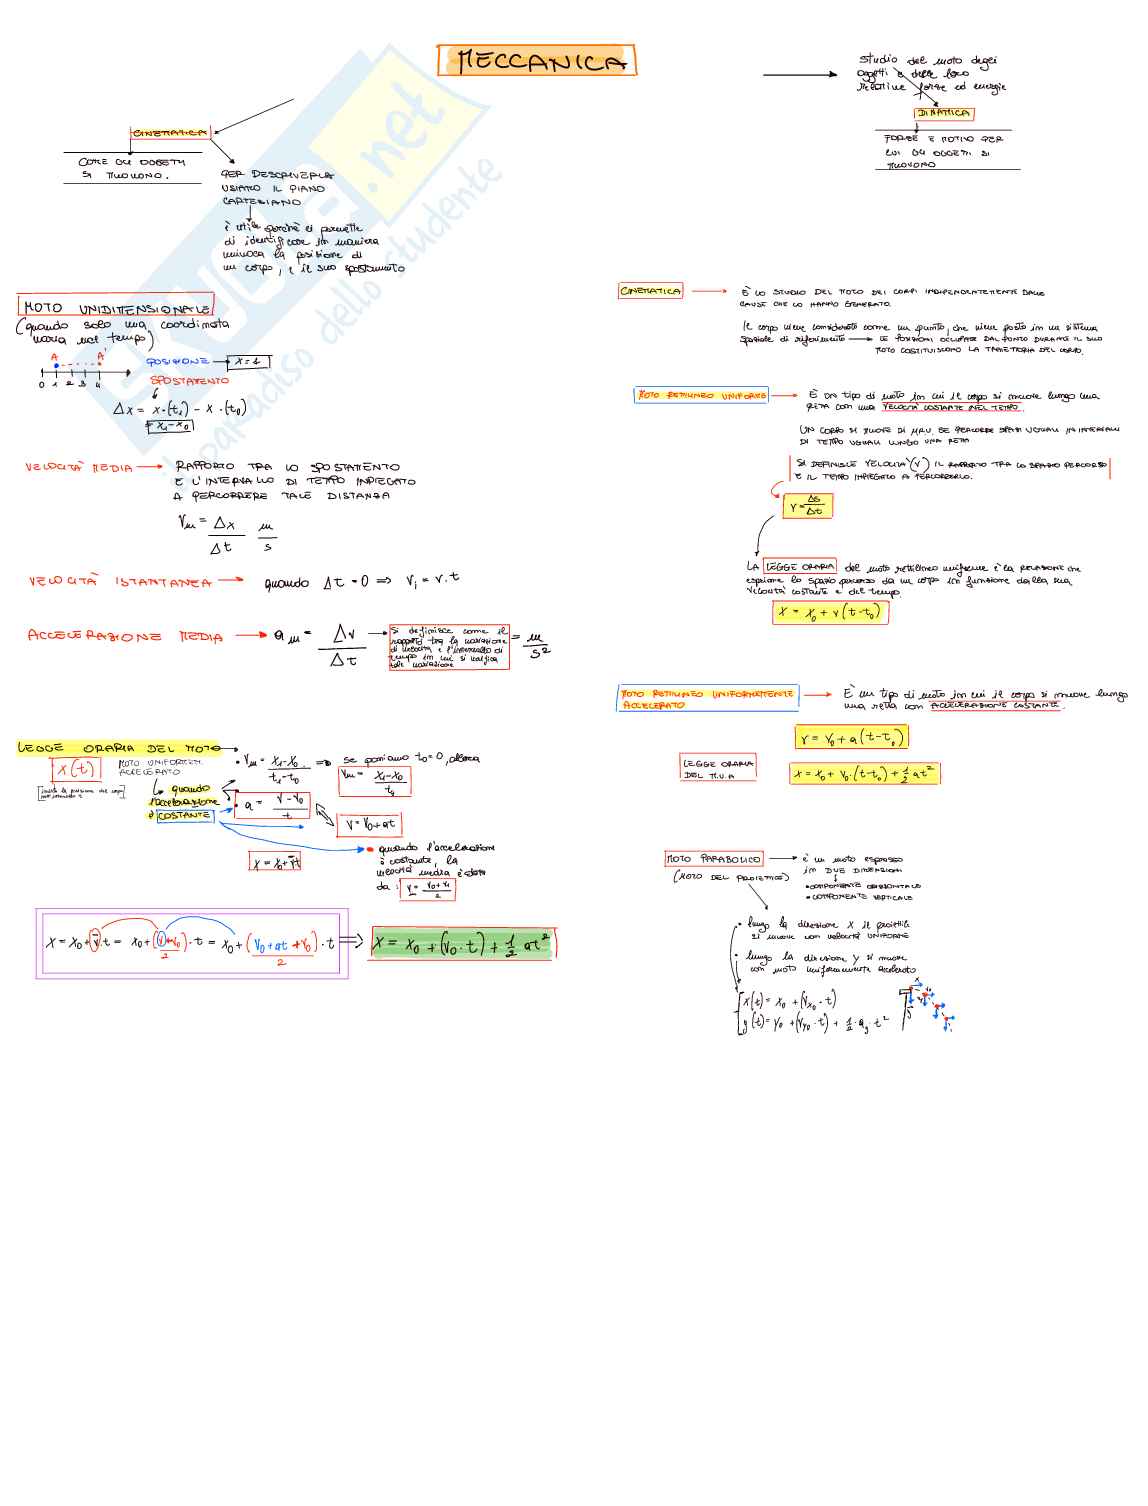 MECCANICA
studio del moto degli
oggetti e delle loro
relative forze ed energie
DINAMICA
FORZE E MOTIVO PER
CUI GLI OGGETTI SI
MUOVONO
CINEMATICA
COME GLI OGGETTI
SI MUOVONO.
PER DESCRIVERLA
USIAMO IL PIANO
CARTESIANO
è utile perchè ci permette
di identificare in maniera
univoca la posizione di
un corpo, e il suo spostamento
MOTO UNIDIMENSIONALE
(quando solo una coordinata
varia nel tempo)
A A'
0 1 2 3 4
POSIZIONE → X = 1
SPOSTAMENTO
Δx = x·(t₁) − x·(t₀)
= x₁−x₀
VELOCITÀ MEDIA → RAPPORTO TRA LO SPOSTAMENTO
E L'INTERVALLO DI TEMPO IMPIEGATO
A PERCORRERE TALE DISTANZA
Vm = Δx / Δt m / s
VELOCITÀ ISTANTANEA → quando Δt → 0 ⇒ Vi = v·t
ACCELERAZIONE MEDIA → am = Δv / Δt → si definisce come il
rapporto tra la variazione
di velocità e l'intervallo di
tempo in cui si verifica
tale variazione
= m / s²
LEGGE ORARIA DEL MOTO
X(t)
MOTO UNIFORMEM.
ACCELERATO
• Vm = X₁−X₀ / t₁−t₀ ⇒ se poniamo t₀=0, allora
Vm = X₁−X₀ / t₁
quando
l'accelerazione
è COSTANTE
• a = V−V₀ / t
V = V₀+at
X = X₀+v̄t
• quando l'accelerazione
è costante, la
velocità media è data
da: v̄ = V₀+V₁ / 2
X = X₀+v̄·t = X₀+(V+V₀ / 2)·t = X₀+(V₀+at+V₀ / 2)·t ⇒ X = X₀+(V₀·t)+½at²
CINEMATICA → È LO STUDIO DEL MOTO DEI CORPI INDIPENDENTEMENTE DALLE
CAUSE CHE LO HANNO GENERATO.
Il corpo viene considerato come un punto, che viene posto in un sistema
spaziale di riferimento → LE POSIZIONI OCCUPATE DAL PUNTO DURANTE IL SUO
MOTO COSTITUISCONO LA TRAIETTORIA DEL CORPO.
MOTO RETILINEO UNIFORME → È un tipo di moto in cui il corpo si muove lungo una
RETTA con una VELOCITÀ COSTANTE NEL TEMPO
UN CORPO SI MUOVE DI M.R.U. SE PERCORRE SPAZI UGUALI IN INTERVALLI
DI TEMPO UGUALI LUNGO UNA RETTA
SI DEFINISCE VELOCITA' (V) IL RAPPORTO TRA LO SPAZIO PERCORSO
E IL TEMPO IMPIEGATO A PERCORRERLO.
V = Δs / Δt
LA LEGGE ORARIA del moto rettilineo uniforme è la RELAZIONE che
esprime lo spazio percorso da un corpo in funzione della sua
velocità costante e del tempo.
X = X₀ + v(t−t₀)
MOTO RETILINEO UNIFORMEMENTE
ACCELERATO → È un tipo di moto in cui il corpo si muove lungo
una retta con ACCELERAZIONE COSTANTE.
V = V₀ + a(t−t₀)
LEGGE ORARIA
DEL M.U.A
X = X₀ + V₀·(t−t₀)+½at²
MOTO PARABOLICO → è un moto espresso
in DUE DIMENSIONI
(MOTO DEL PROIETTILE)
• COMPONENTE ORIZZONTALE
• COMPONENTE VERTICALE
• lungo la direzione X il proiettile
si muove con velocità UNIFORME
• lungo la direzione Y si muove
con moto uniformemente accelerato
X(t) = X₀ + (Vx₀·t)
y(t) = Y₀ + (Vy₀·t) + ½·ag·t²
SKUOLA.net
il paradiso dello studente